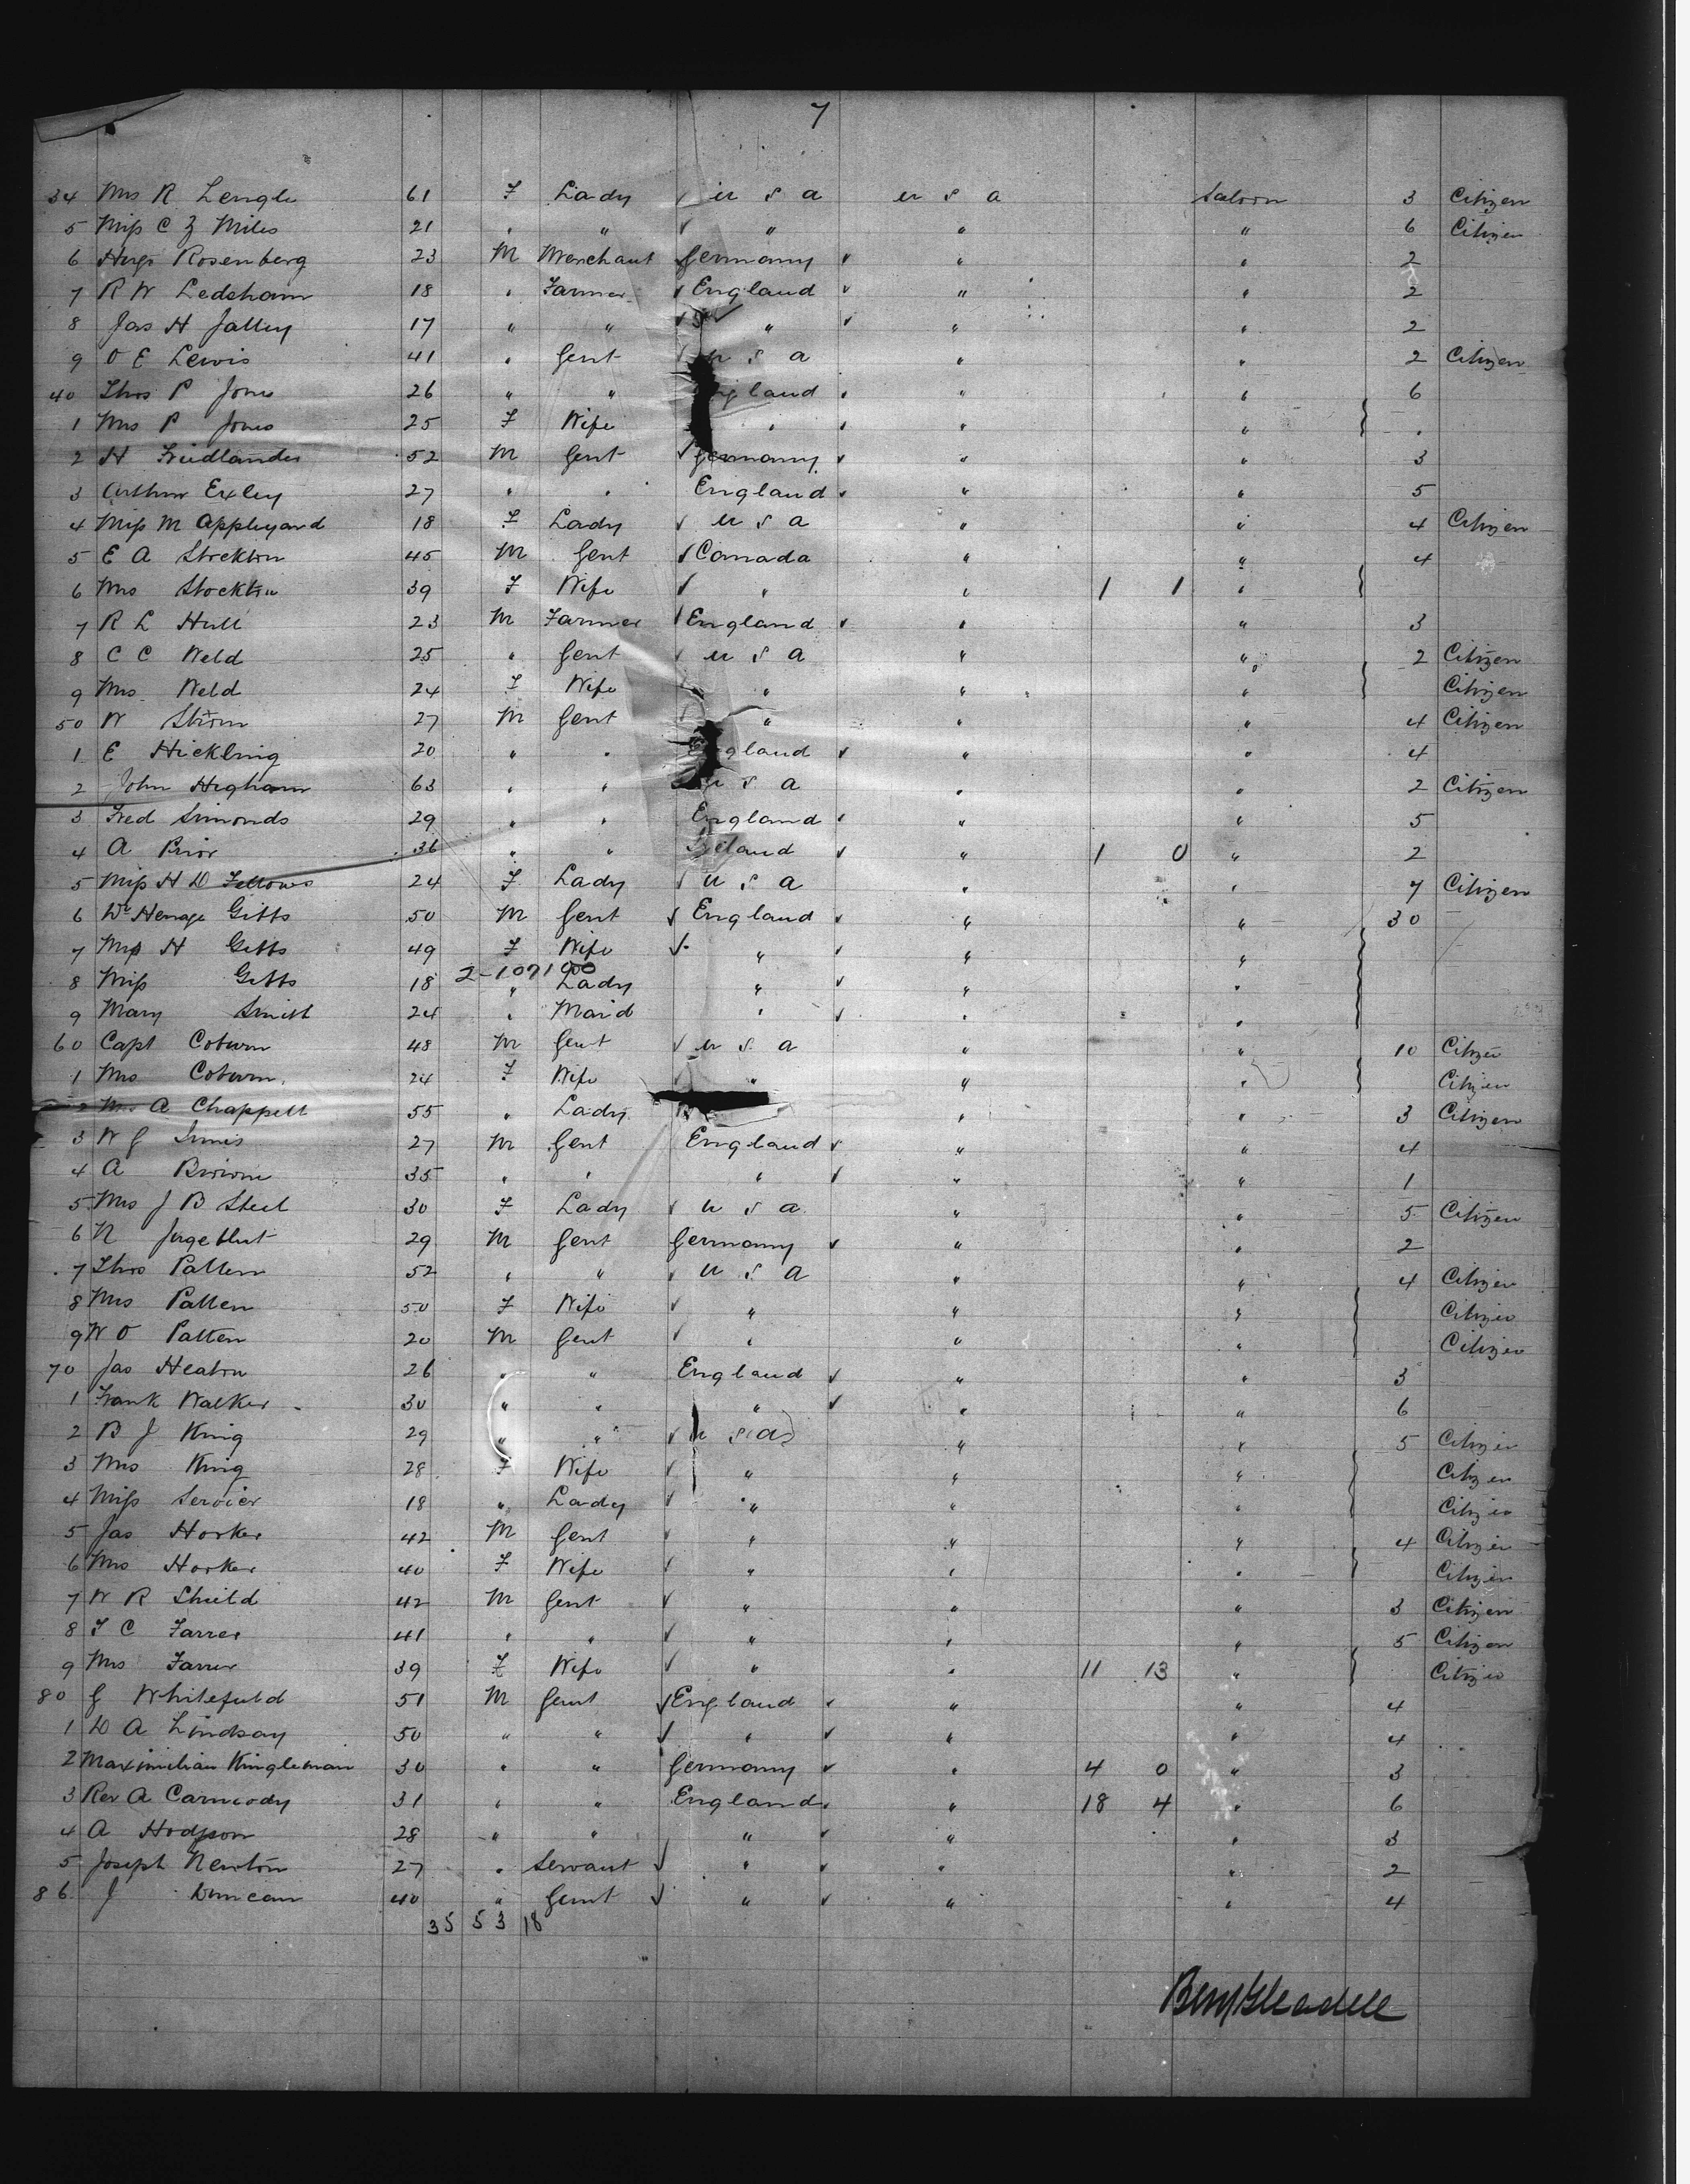 7
34 Mrs R Lengle 61 F Lady ✓ U S A U S A Saloon 3 Citizen
5 Miss C Z Miles 21 " " ✓ " " " 6 Citizen
6 Hugo Rosenberg 23 M Merchant Germany ✓ " " 2
7 R W Ledsham 18 " Farmer ✓ England ✓ " " 2
8 Jas H Jalley 17 " " ✓ " ✓ " " 2
9 O E Lewis 41 " Gent ✓ U S A " " 2 Citizen
40 Thos P Jones 26 " " England " " 6
1 Mrs P Jones 25 F Wife " " "
2 H Friedlander 52 M Gent ✓ Germany ✓ " " 3
3 Arthur Exley 27 " " England ✓ " " 5
4 Miss M Appleyard 18 F Lady ✓ U S A " " 4 Citizen
5 E A Stockton 45 M Gent ✓ Canada " " 4
6 Mrs Stockton 39 F Wife ✓ " " 1 1 "
7 R L Hull 23 M Farmer ✓ England ✓ " " 3
8 C C Weld 25 " Gent ✓ U S A " " 2 Citizen
9 Mrs Weld 24 F Wife " " " Citizen
50 W Storm 27 M Gent " " " 4 Citizen
1 E Hickling 20 " " England ✓ " " 4
2 John Higham 63 " " U S A " " 2 Citizen
3 Fred Simonds 29 " " England ✓ " " 5
4 A Prior 36 " " Ireland ✓ " 1 0 " 2
5 Miss H D Fellows 24 F Lady ✓ U S A " " 7 Citizen
6 Dr Henage Gibbs 50 M Gent ✓ England ✓ " " 30
7 Mrs H Gibbs 49 F Wife ✓ " ✓ " "
2-109100
8 Miss Gibbs 18 " Lady " ✓ " "
9 Mary Smith 24 " Maid " ✓ " "
60 Capt Coburn 48 M Gent ✓ U S A " " 10 Citizen
1 Mrs Coburn 24 F Wife " " " Citizen
2 Mrs A Chappell 55 " Lady " " 3 Citizen
3 W G Innis 27 M Gent England ✓ " " 4
4 A Browne 35 " " " ✓ " " 1
5 Mrs J B Steel 30 F Lady ✓ U S A " " 5 Citizen
6 N Jugeblut 29 M Gent Germany ✓ " " 2
7 Thos Patten 52 " " ✓ U S A " " 4 Citizen
8 Mrs Patten 50 F Wife ✓ " " " Citizen
9 W O Patten 20 M Gent ✓ " " " Citizen
70 Jas Heaton 26 " " England ✓ " " 3
1 Frank Walker 30 " " " ✓ " " 6
2 B J King 29 " " ✓ U S A " " 5 Citizen
3 Mrs King 28 F Wife ✓ " " " Citizen
4 Miss Servier 18 " Lady ✓ " " " Citizen
5 Jas Hooker 42 M Gent ✓ " " " 4 Citizen
6 Mrs Hooker 40 F Wife ✓ " " " Citizen
7 W R Shield 42 M Gent ✓ " " " 3 Citizen
8 T C Farrer 41 " " ✓ " " " 5 Citizen
9 Mrs Farrer 39 F Wife ✓ " " 11 13 " Citizen
80 G Whitefield 51 M Gent ✓ England ✓ " " 4
1 D A Lindsay 50 " " ✓ " ✓ " " 4
2 Maximilian Kingleman 30 " " Germany ✓ " 4 0 " 3
3 Rev A Carmody 31 " " England ✓ " 18 4 " 6
4 A Hodgson 28 " " " ✓ " " 3
5 Joseph Newton 27 " Servant ✓ " ✓ " " 2
86 J Duncan 40 " Gent ✓ " ✓ " " 4
35 53 18
Benj Gleadell